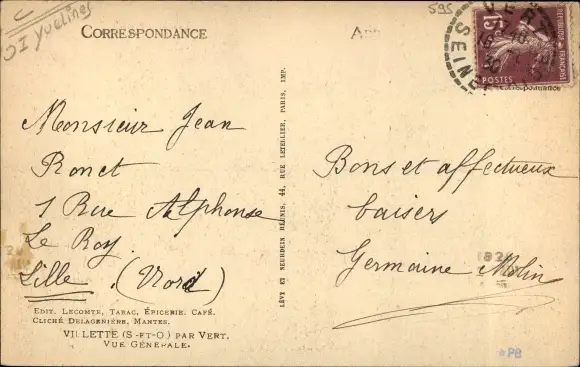 Yvelines
595
CORRESPONDANCE
VERT
SEINE
15c
REPUBLIQUE FRANÇAISE
POSTES
Correspondance
Monsieur Jean
Ronet
1 Rue Alphonse
Le Roy
Lille. (Nord)
LÉVY ET NEURDEIN RÉUNIS, 44, RUE LETELLIER, PARIS, IMP.
Bons et affectueux
baisers
Germaine Molin
EDIT. LECOMTE, TABAC, ÉPICERIE, CAFÉ.
CLICHÉ DELAGENIÈRE, MANTES.
VILLETTE (S-ET-O) PAR VERT.
VUE GÉNÉRALE.
PB